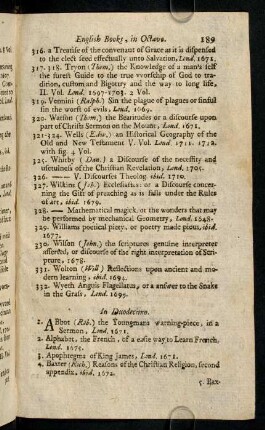 English Books, in Octavo. 189
316. a Treatise of the convenant of Grace as it is dispensed
to the elect seed effectually unto Salvation, Lond. 1671.
317. 318. Tryon (Thom.) the Knowledge of a man's self
the surest Guide to the true vvorship of God to tra-
dition, custum and Bigottry and the way to long life,
II. Vol. Lond. 1697-1703. 2 Vol.
319. Venning (Ralph.) Sin the plague of plagues or sinful
sin the worst of evils, Lond. 1669.
320. Watson (Thom.) the Beatitudes or a discourse upon
part of Christs Sermon on the Mount, Lond. 1671.
321-324. Wells (Edw.) an Historical Geography of the
Old and New Testament V. Vol. Lond. 1711. 1712.
with fig. 4 Vol.
325. Whitby (Dan.) a Discourse of the necessity and
usefulness of the Christian Revelation, Lond. 1705.
326. — — V. Discourses Theolog. ibid. 1710.
327. Wilkins (Joh.) Ecclesiastes: or a Discourse concer-
ning the Gift of preaching as it falls under the Rules
of art, ibid. 1679.
328. — Mathematical magick, or the wonders that may
be performed by mechanical Geometry, Lond. 1648.
329. Williams poetical piety, or poetry made pious, ibid.
1677.
330. Wilson (John.) the scriptures genuine interpreter
asserted, or discourse of the right interpretation of Scrip-
ture, 1678.
331. Wolton (Will) Reflections upon ancient and mo-
dern learning, ibid. 1694.
332. Wyeth Anguis Flagellatus, or a answer to the Snake
in the Grass, Lond. 1699.
In Duodecimo.
1. Abbot (Rob.) the Youngmans warning-piece, in a
Sermon, Lond. 1671.
2. Alphabet, the French, of a easie way to Learn French,
Lond. 1675.
3. Apophtegms of King James, Lond. 1671.
4. Baxter (Rich.) Reasons of the Christian Religion, second
appendix, ibid. 1672.
5. Bax-